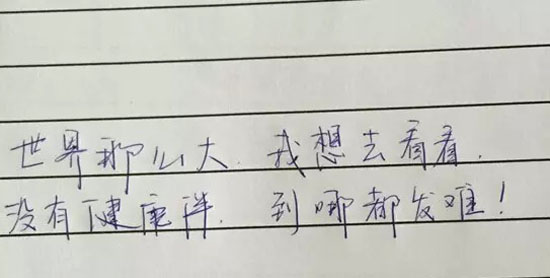 世界那么大.我想去看看.
没有健康伴.到哪都发难!